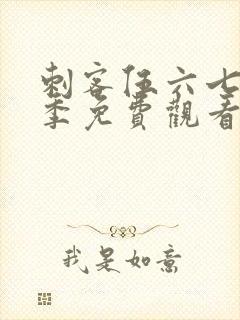 刺客伍六七
季免費觀看
我是如意